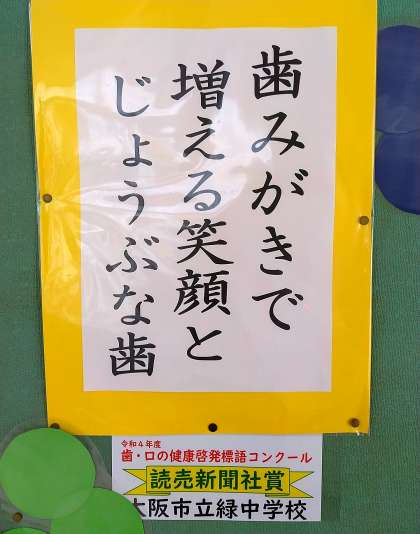 歯みがきで
増える笑顔と
じょうぶな歯
令和4年度
歯・口の健康啓発標語コンクール
読売新聞社賞
大阪市立緑中学校